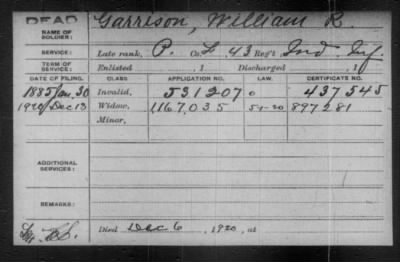 DEAD
NAME OF SOLDIER: Garrison, William R.
SERVICE: Late rank, P. Co. 43 Reg't Ind Inf
TERM OF SERVICE: Enlisted , 1 Discharged , 1
DATE OF FILING. CLASS APPLICATION NO. LAW. CERTIFICATE NO.
1885 Jan. 30 Invalid, 531207 0 437545
1920 Dec 13 Widow, 1,167,035 5-1-20 897281
Minor,
ADDITIONAL SERVICES:
REMARKS:
Died Dec 6, 1920, at